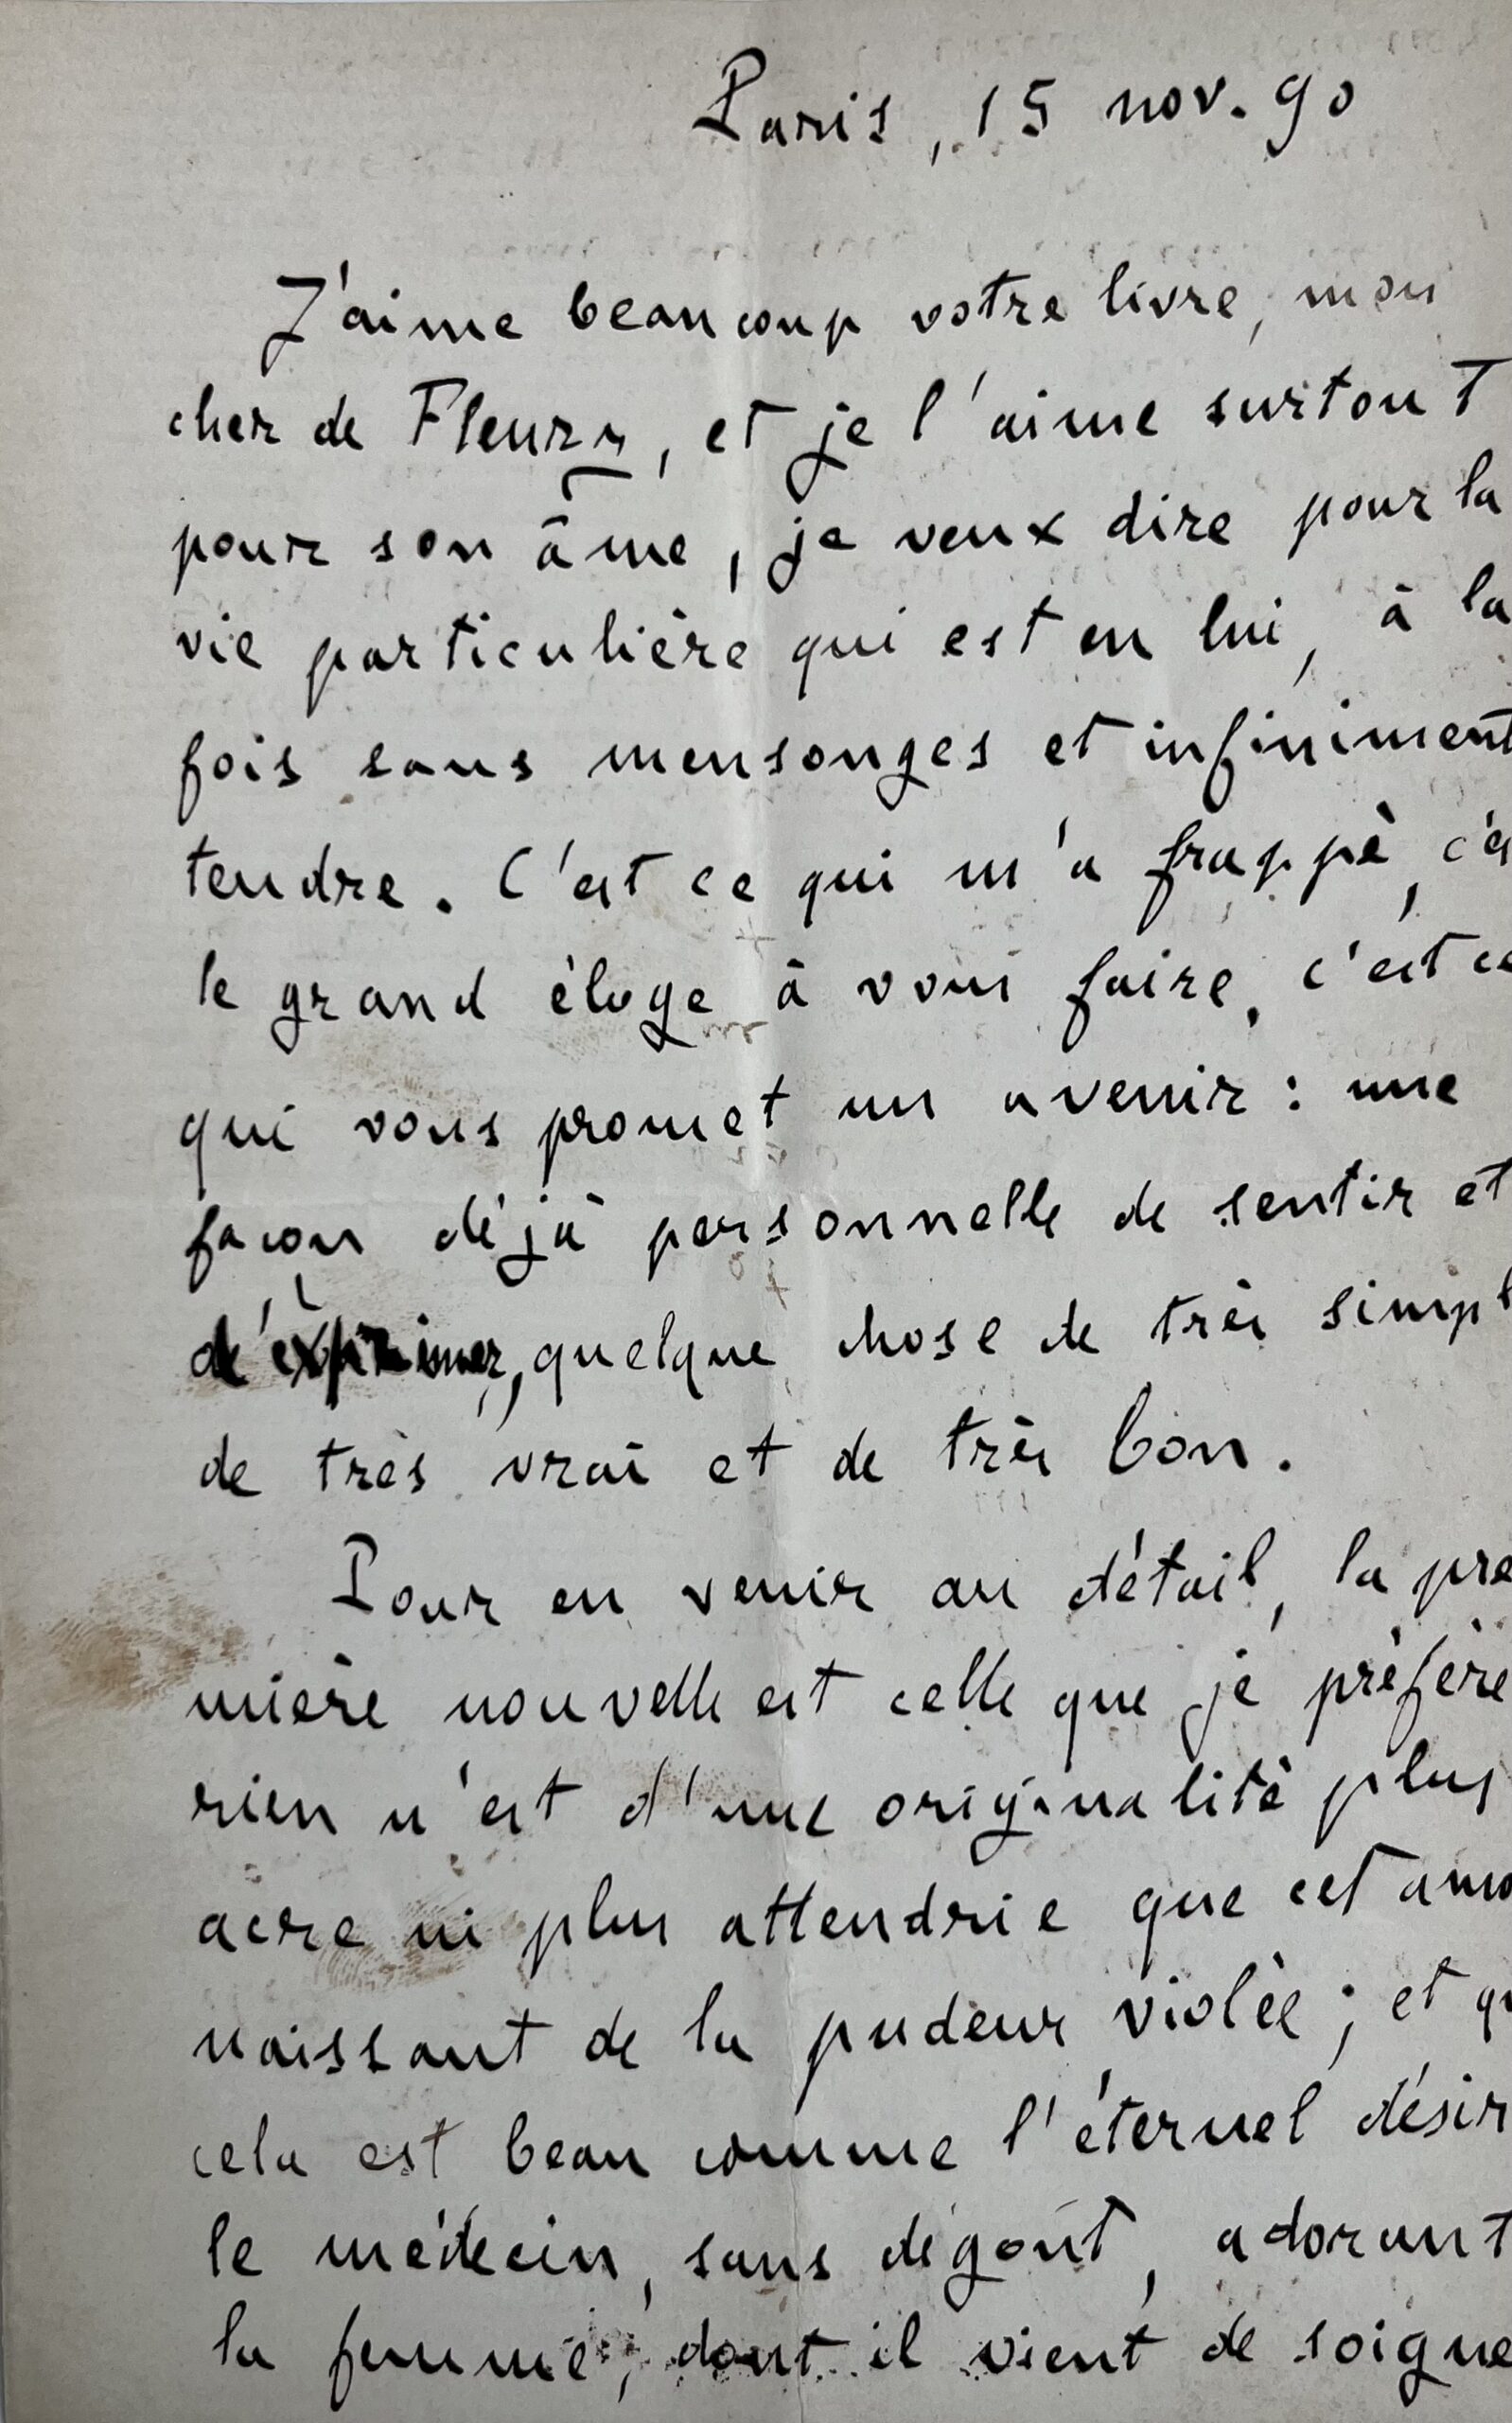 Paris, 15 nov. 90
J'aime beaucoup votre livre, mon
cher de Fleury, et je l'aime surtout
pour son âme, je veux dire pour la
vie particulière qui est en lui, à la
fois sans mensonges et infiniment
tendre. C'est ce qui m'a frappé, c'es
le grand éloge à vous faire, c'est ce
qui vous promet un avenir : une
façon déjà personnelle de sentir et
d'exprimer, quelque chose de très simpl
de très vrai et de très bon.
Pour en venir au détail, la pre
mière nouvelle est celle que je préfère
rien n'est d'une originalité plus
acre ni plus attendrie que cet amo
naissant de la pudeur violée ; et qu
cela est beau comme l'éternel désir
le médecin, sans dégoût, adorant
la femme, dont il vient de soigne